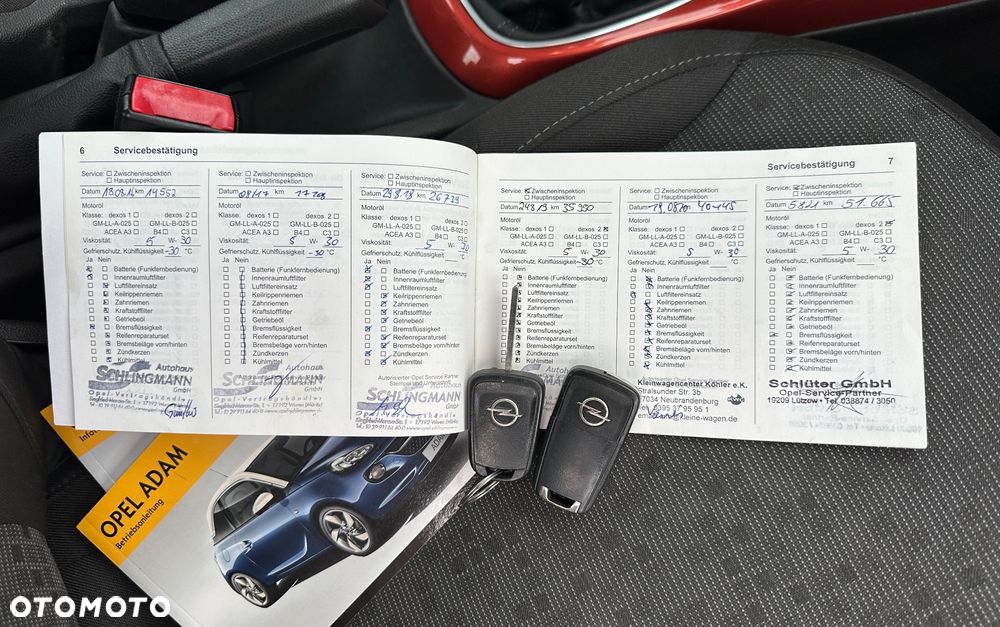 6 Servicebestätigung
Service: Zwischeninspektion
Hauptinspektion
Datum 13.08.14 km 14552
Motoröl
Klasse: dexos 1 dexos 2
GM-LL-A-025 GM-LL-B-025
ACEA A3 B4 C3
Viskosität: 5 W- 30
Gefrierschutz, Kühlflüssigkeit -30 °C
Ja Nein
Batterie (Funkfernbedienung)
Innenraumluftfilter
Luftfiltereinsatz
Keilrippenriemen
Zahnriemen
Kraftstofffilter
Getriebeöl
Bremsflüssigkeit
Reifenreparaturset
Bremsbeläge vorn/hinten
Zündkerzen
Kühlmittel
Autohaus
SCHLINGMANN
GmbH
Opel-Vertragshändler
Service: Zwischeninspektion
Hauptinspektion
Datum 08/17 km
Motoröl
Klasse: dexos 1 dexos 2
GM-LL-A-025 GM-LL-B-025
ACEA A3 B4 C3
Viskosität: 5 W- 30
Gefrierschutz, Kühlflüssigkeit -30 °C
Ja Nein
Batterie (Funkfernbedienung)
Innenraumluftfilter
Luftfiltereinsatz
Keilrippenriemen
Zahnriemen
Kraftstofffilter
Getriebeöl
Bremsflüssigkeit
Reifenreparaturset
Bremsbeläge vorn/hinten
Zündkerzen
Kühlmittel
Autohaus
SCHLINGMANN
GmbH
Service: Zwischeninspektion
Hauptinspektion
Datum 29.8.18 km 26779
Motoröl
Klasse: dexos 1 dexos 2
GM-LL-A-025 GM-LL-B-025
ACEA A3 B4 C3
Viskosität: 5 W- 30
Gefrierschutz, Kühlflüssigkeit °C
Ja Nein
Batterie (Funkfernbedienung)
Innenraumluftfilter
Luftfiltereinsatz
Keilrippenriemen
Zahnriemen
Kraftstofffilter
Getriebeöl
Bremsflüssigkeit
Reifenreparaturset
Bremsbeläge vorn/hinten
Zündkerzen
Kühlmittel
Autorisierter Opel Service Partner
Autohaus
SCHLINGMANN
GmbH
Servicebestätigung 7
Service: Zwischeninspektion
Hauptinspektion
Datum km 35390
Motoröl
Klasse: dexos 1 dexos 2
GM-LL-A-025 GM-LL-B-025
ACEA A3 B4 C3
Viskosität: 5 W- 30
Gefrierschutz, Kühlflüssigkeit -30 °C
Ja Nein
Batterie (Funkfernbedienung)
Innenraumluftfilter
Luftfiltereinsatz
Keilrippenriemen
Zahnriemen
Kraftstofffilter
Getriebeöl
Bremsflüssigkeit
Reifenreparaturset
Bremsbeläge vorn/hinten
Zündkerzen
Kühlmittel
Service: Zwischeninspektion
Hauptinspektion
Datum
Motoröl
Klasse: dexos 1 dexos 2
GM-LL-A-025 GM-LL-B-025
ACEA A3 B4 C3
Viskosität: 5 W- 30
Gefrierschutz, Kühlflüssigkeit °C
Ja Nein
Batterie (Funkfernbedienung)
Innenraumluftfilter
Luftfiltereinsatz
Keilrippenriemen
Zahnriemen
Kraftstofffilter
Getriebeöl
Bremsflüssigkeit
Reifenreparaturset
Bremsbeläge vorn/hinten
Zündkerzen
Kühlmittel
Kleinwagencenter Köhler e.K.
Stralsunder Str. 3b
17034 Neubrandenburg
Service: Zwischeninspektion
Hauptinspektion
Datum 5.8.21 km 51.665
Motoröl
Klasse: dexos 1 dexos 2
GM-LL-A-025 GM-LL-B-025
ACEA A3 B4 C3
Viskosität: 5 W- 30
Gefrierschutz, Kühlflüssigkeit °C
Ja Nein
Batterie (Funkfernbedienung)
Innenraumluftfilter
Luftfiltereinsatz
Keilrippenriemen
Zahnriemen
Kraftstofffilter
Getriebeöl
Bremsflüssigkeit
Reifenreparaturset
Bremsbeläge vorn/hinten
Zündkerzen
Kühlmittel
Schlüter GmbH
Opel-Service-Partner
19209 Lützow • Tel. 038874 / 3050
OPEL ADAM
Betriebsanleitung
ADAM
OTOMOTO